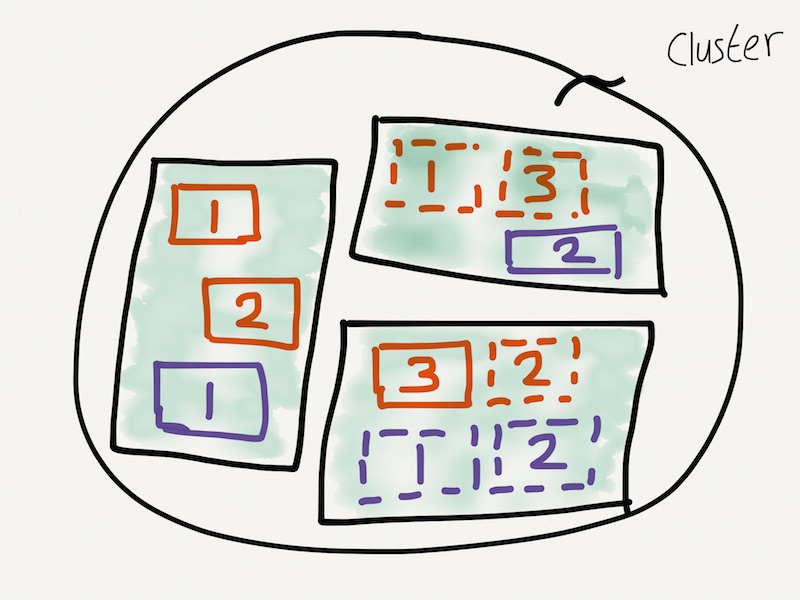 Cluster
1
2
1
1 3
2
3 2
1 2